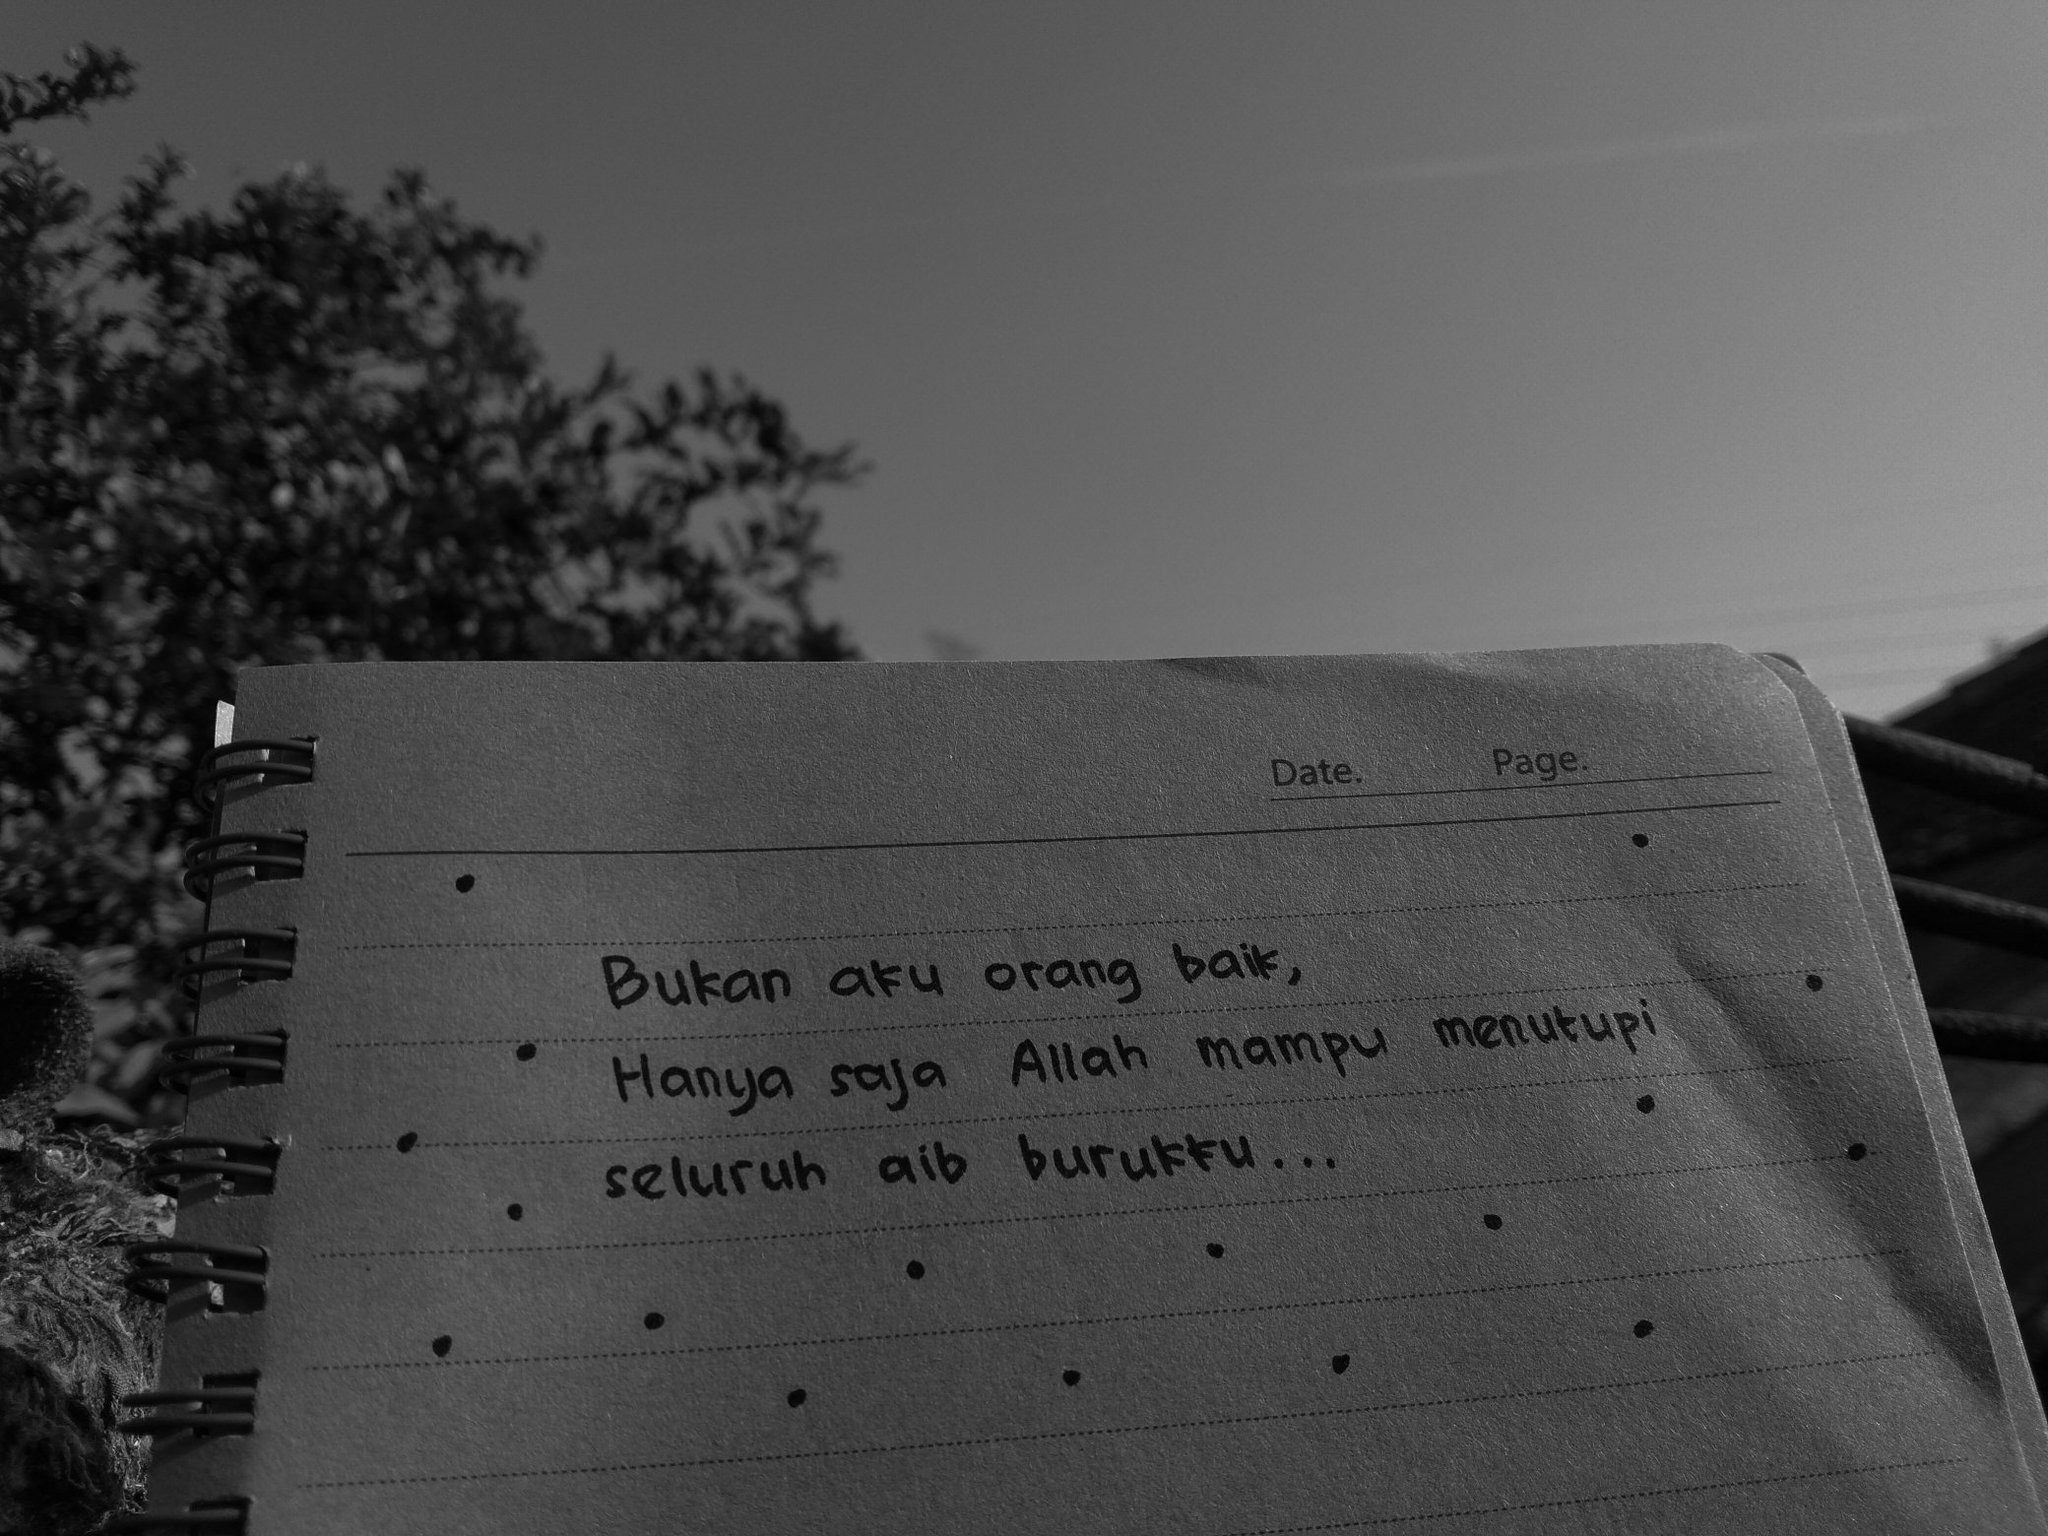 Date. Page.
Bukan aku orang baik,
Hanya saja Allah mampu menutupi
seluruh aib burukku...